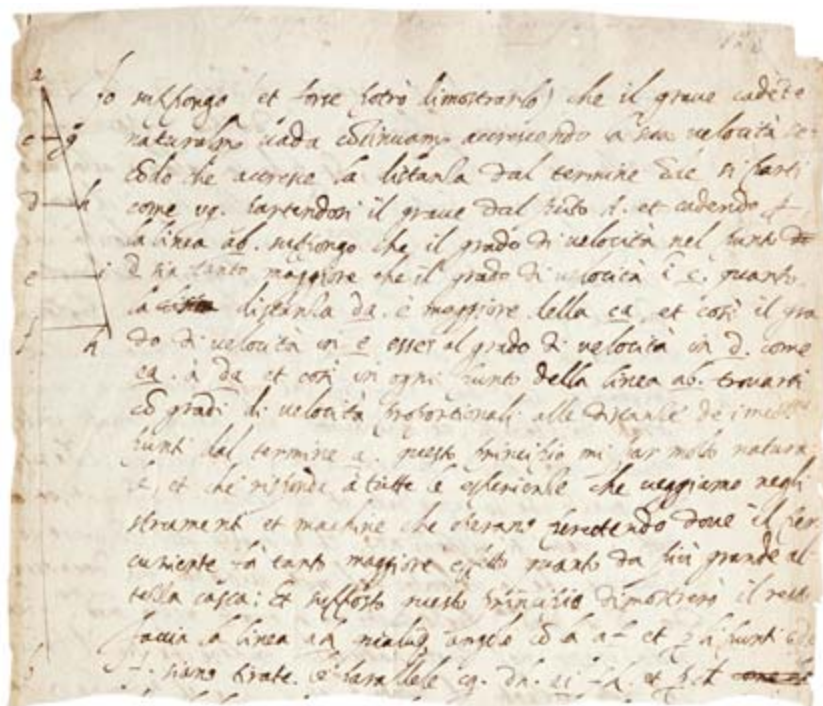 128
a
Io suppongo (et forse potrò dimostrarlo) che il grave cadẽte
c g
naturalmẽ vada cõtinuamẽ accrescendo la sua velocità se-
cõdo che accresce la distanza dal termine õde si partì
d h
come vg. partendosi il grave dal pũto a. et cadendo p
la linea ab. suppongo che il grado di velocità nel punto
e i
d sia tanto maggiore che il grado di velocità ĩ c. quanto
la distanza da. è maggiore della ca. et così il gra
f k
do di velocità in e esser al grado di velocità in d. come
ea. à da et così in ogni punto della linea ab. trovarsi
cõ gradi di velocità proportionali alle distanze de i med.mi
punti dal termine a. questo principio mi par molto natura
le, et che risponda à tutte le esperienze che veggiamo negli
strumenti et machine che operano percotendo dove il per
cuziente fà tanto maggiore effetto quanto da più grande al-
tezza casca: Et supposto questo principio dimostrerò il resto
faccia la linea ak qualũq angolo cõ la af et p li punti c d e
b
f. siano tirate le parallele cg. dh. ei fk et